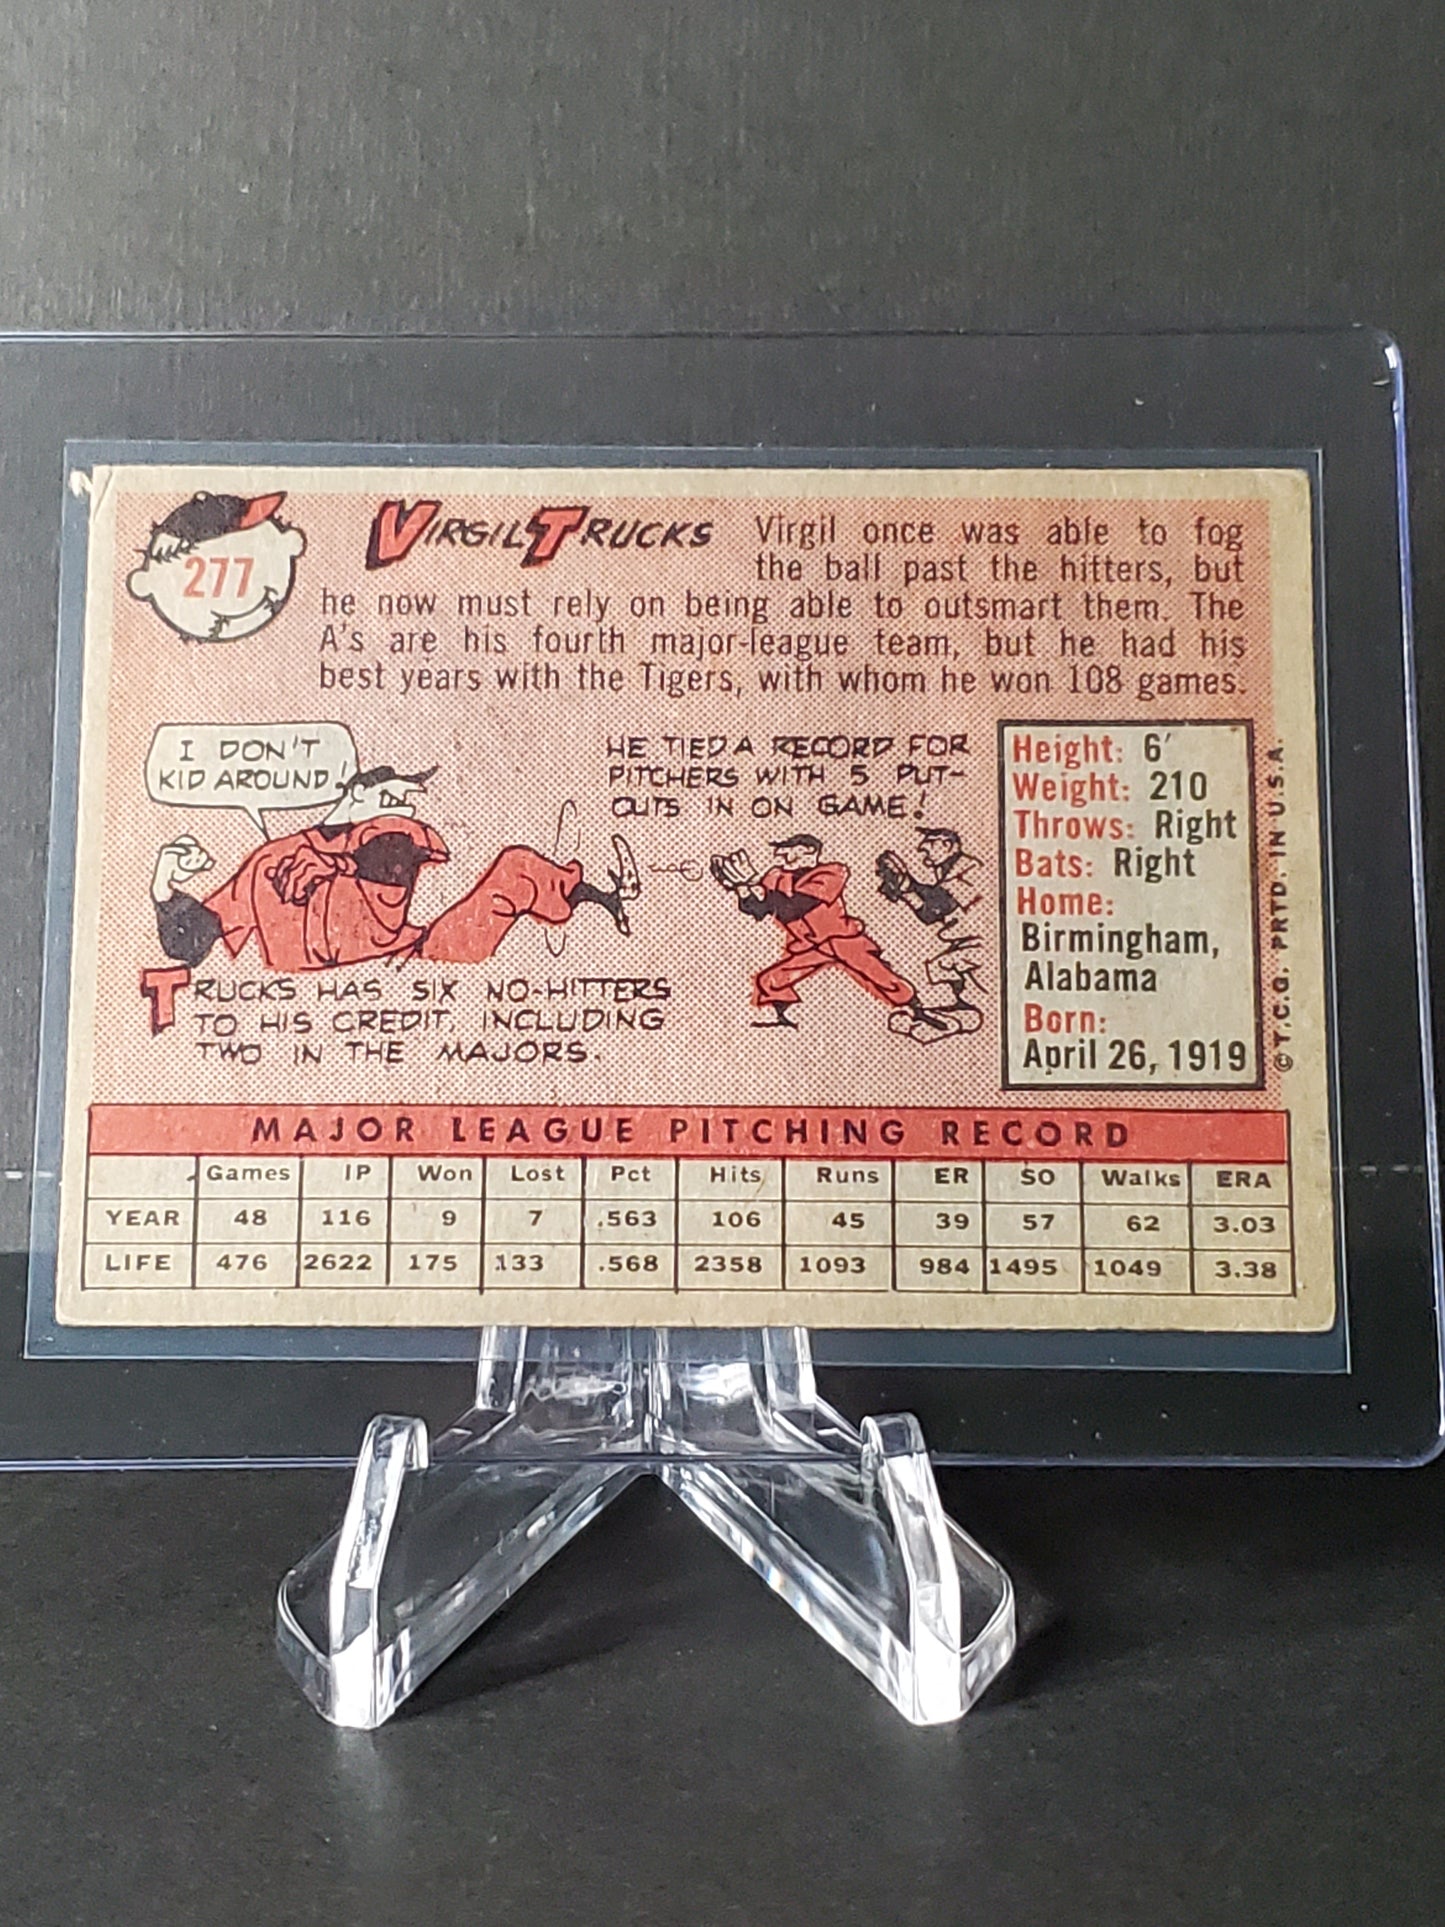 277
VIRGIL TRUCKS
Virgil once was able to fog
the ball past the hitters, but
he now must rely on being able to outsmart them. The
A's are his fourth major-league team, but he had his
best years with the Tigers, with whom he won 108 games.
I DON'T
KID AROUND!
HE TIED A RECORD FOR
PITCHERS WITH 5 PUT-
OUTS IN ON GAME!
TRUCKS HAS SIX NO-HITTERS
TO HIS CREDIT, INCLUDING
TWO IN THE MAJORS.
Height: 6'
Weight: 210
Throws: Right
Bats: Right
Home:
Birmingham,
Alabama
Born:
April 26, 1919
© T.C.G. PRTD. IN U.S.A.
MAJOR LEAGUE PITCHING RECORD
Games IP Won Lost Pct Hits Runs ER SO Walks ERA
YEAR 48 116 9 7 .563 106 45 39 57 62 3.03
LIFE 476 2622 175 133 .568 2358 1093 984 1495 1049 3.38